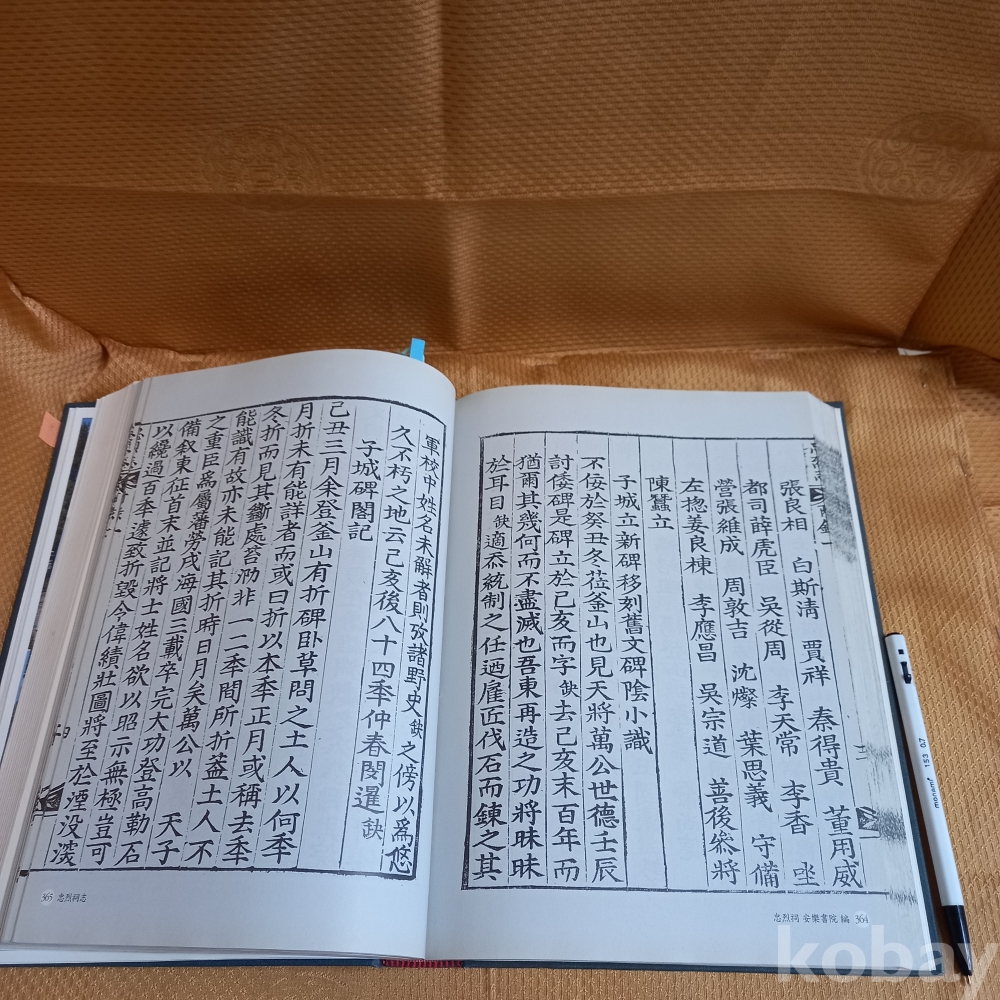 張良相 白斯淸 賈祥 秦得貴 董用威
都司薛虎臣 吳從周 李天常 李香 坐
營張維成 周敦吉 沈燦 葉思義 守備
左摠姜良棟 李應昌 吳宗道 善後叅將
陳蠶立
子城立新碑移刻舊文碑陰小識
不佞於癸丑冬莅釜山也見天將萬公世德壬辰
討倭碑是碑立於己亥而字缺去己亥未百年而
猶爾其幾何而不盡滅也吾東再造之功將昧昧
於耳目缺適忝統制之任迺雇匠伐石而鍊之其
忠烈祠 安樂書院 編 364
軍校中姓名未解者則攷諸野史缺之傍以爲悠
久不朽之地云己亥後八十四秊仲春閔暹缺
子城碑閣記
己丑三月余登釜山有折碑卧草問之土人以何秊
月折未有能詳者而或曰折以本秊正月或稱去秊
冬折而見其斷處苔泐非一二秊間所折葢土人不
能識有故亦未能記其折時日月矣萬公以 天子
之重臣爲屬藩勞戍海國三載卒完大功登高勒石
備叙東征首末並記將士姓名欲以昭示無極豈可
以纔過百秊遽致折毁令偉績壯圖將至於湮没
365 忠烈祠志
monami 153 0.7
kobay